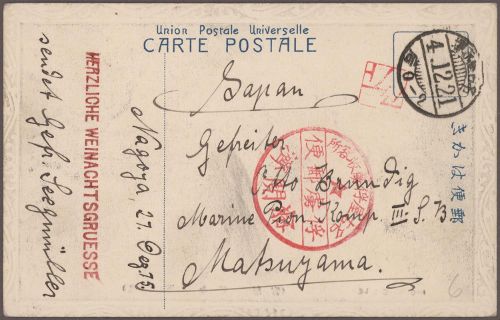 Union Postale Universelle
CARTE POSTALE
4.12.21
きかは便郵
Japan
Gefreiter
Otto Brundig
Marine Pion. Komp. III S. B.
Matsuyama.
俘虜郵便
HERZLICHE WEINACHTSGRUESSE
sendet Gefr. Seegmüller
Nagoya, 21. Dez. 15